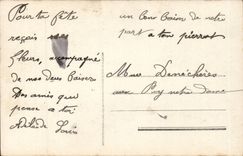 Pour ta fête
reçois nos
fleurs, acompagné
de nos deux baiser
Des amis que
pense a toi
un bon baiser de notre
part a ton pierrot
Mme Denéchères
aux Puy notre dame